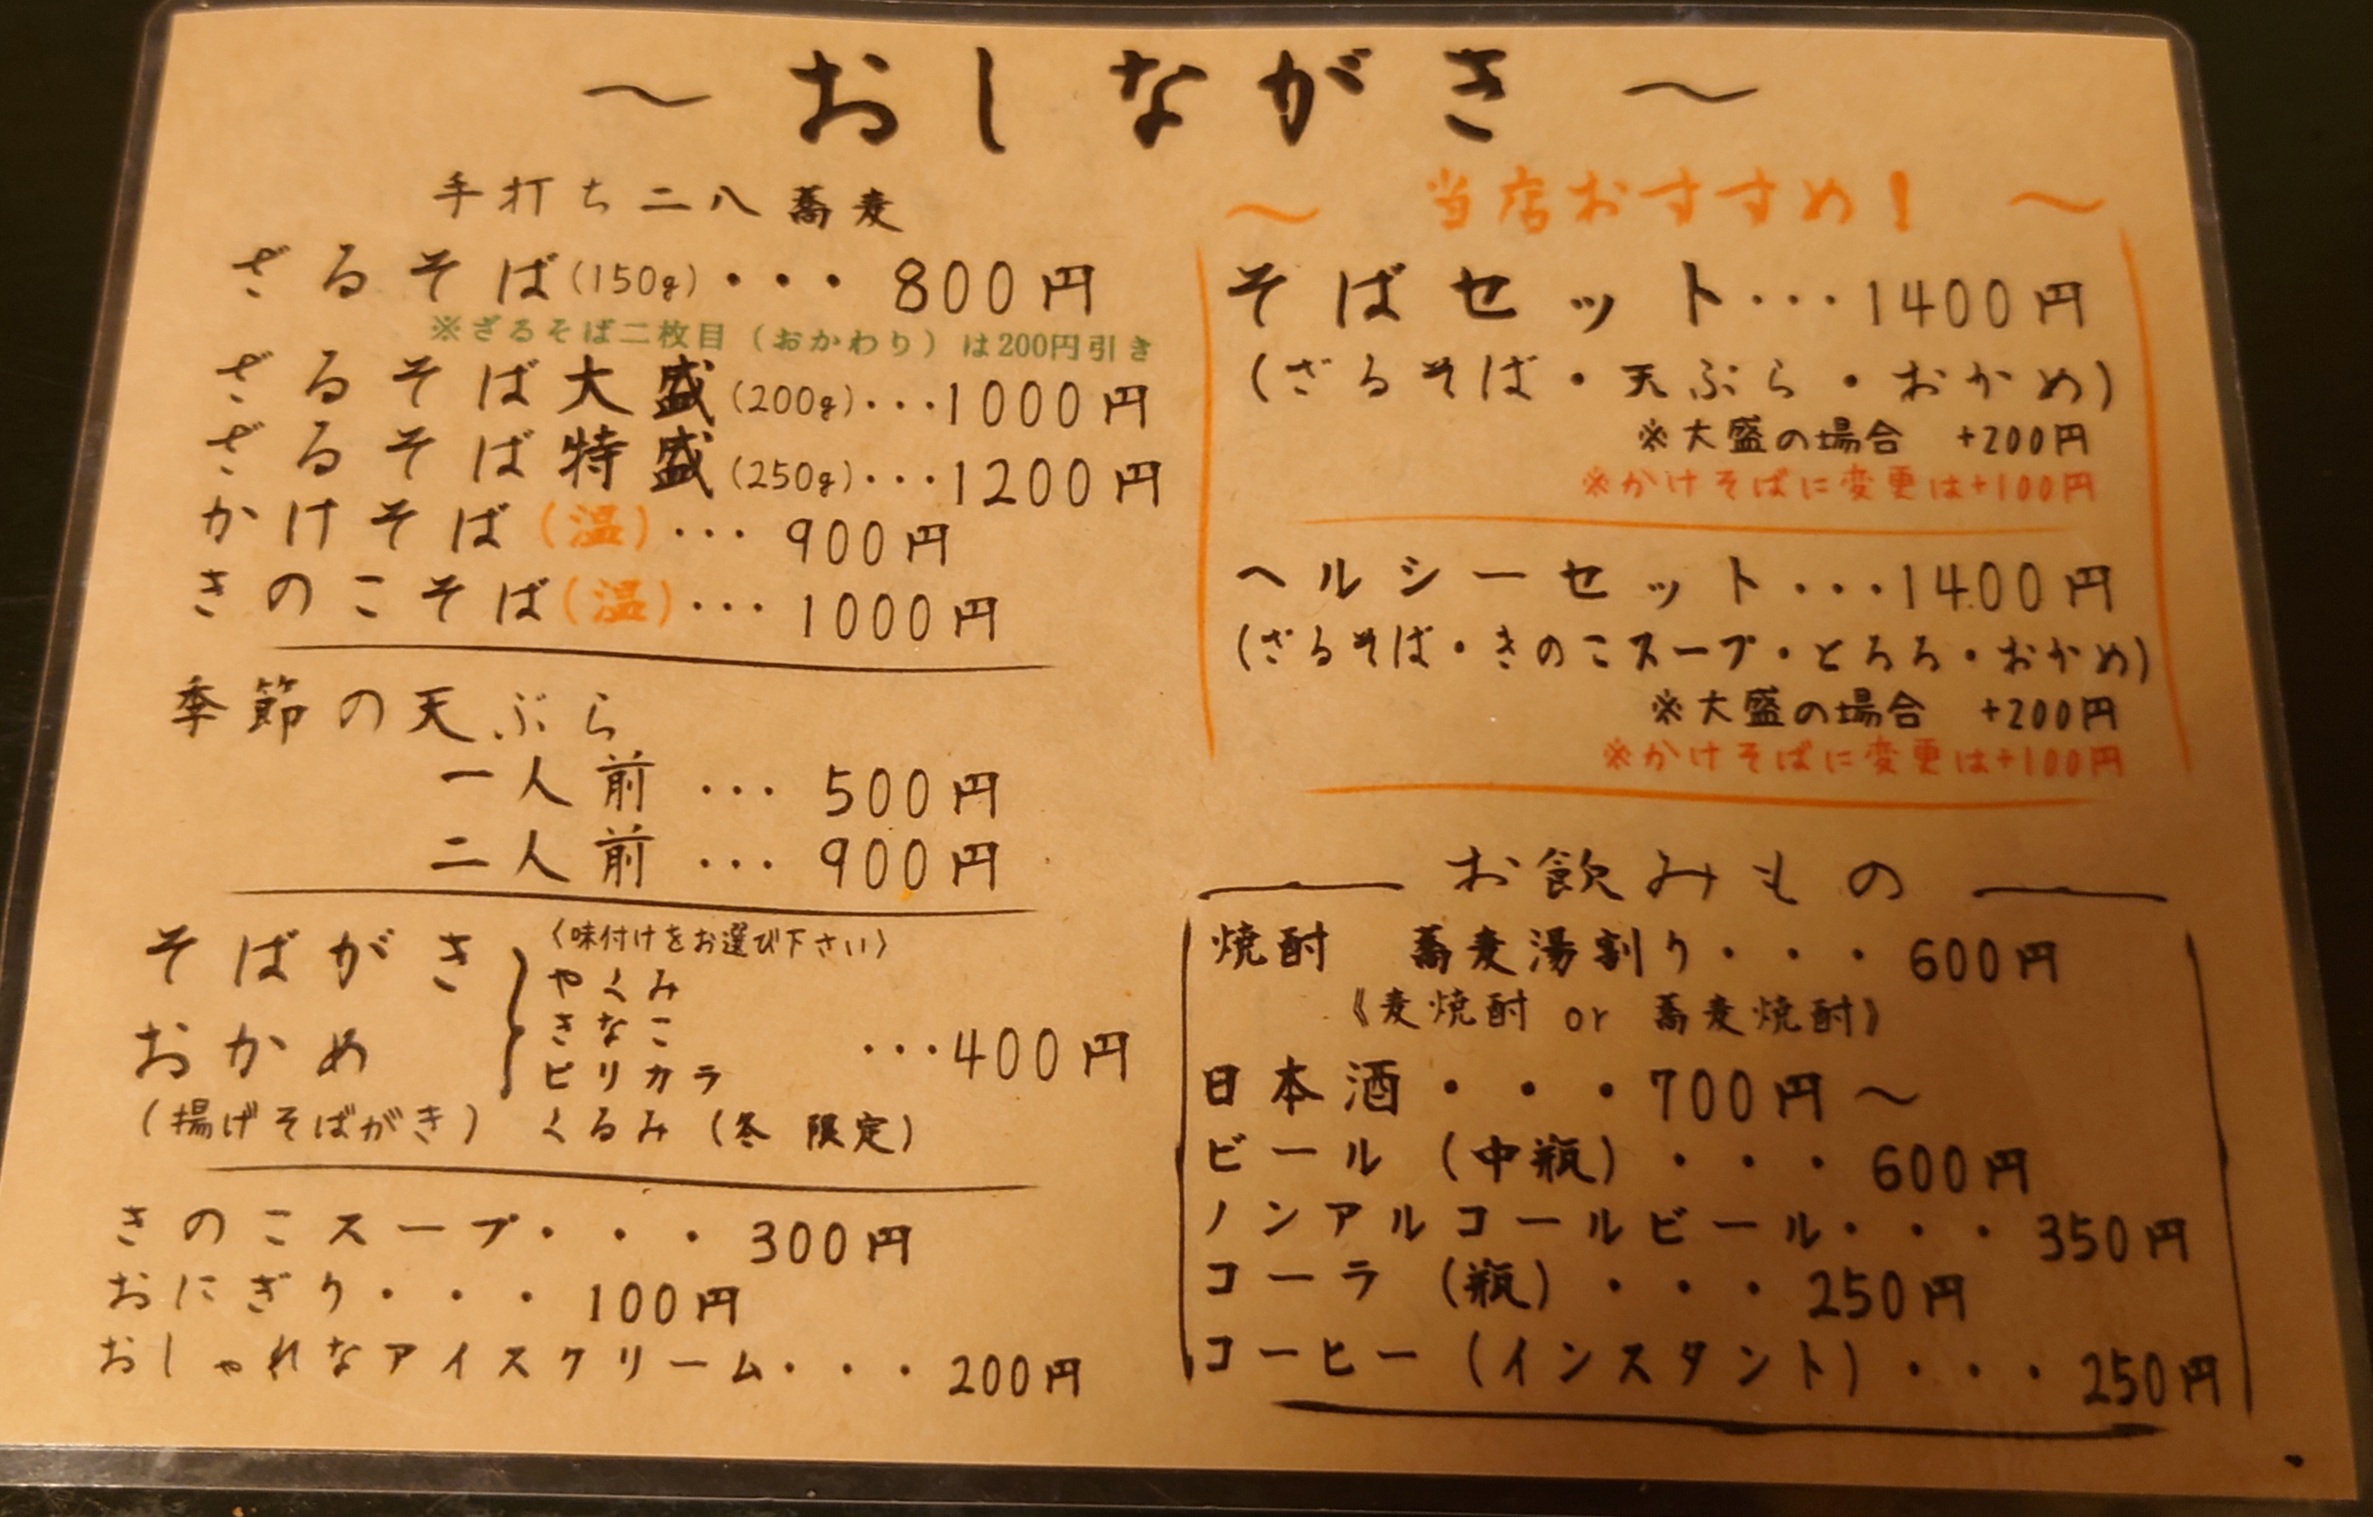 ～おしながき～
手打ち二八蕎麦
ざるそば(150g)・・・800円
※ざるそば二枚目（おかわり）は200円引き
ざるそば大盛(200g)・・・1000円
ざるそば特盛(250g)・・・1200円
かけそば(温)・・・900円
きのこそば(温)・・・1000円
季節の天ぷら
一人前・・・500円
二人前・・・900円
そばがき
おかめ
(揚げそばがき)
〈味付けをお選び下さい〉
やくみ
きなこ
ピリカラ
くるみ(冬限定)
・・・400円
きのこスープ・・・300円
おにぎり・・・100円
おしゃれなアイスクリーム・・・200円
～当店おすすめ！～
そばセット・・・1400円
(ざるそば・天ぷら・おかめ)
※大盛の場合 +200円
※かけそばに変更は+100円
ヘルシーセット・・・1400円
(ざるそば・きのこスープ・とろろ・おかめ)
※大盛の場合 +200円
※かけそばに変更は+100円
お飲みもの
焼酎 蕎麦湯割り・・・600円
《麦焼酎 or 蕎麦焼酎》
日本酒・・・700円～
ビール(中瓶)・・・600円
ノンアルコールビール・・・350円
コーラ(瓶)・・・250円
コーヒー(インスタント)・・・250円